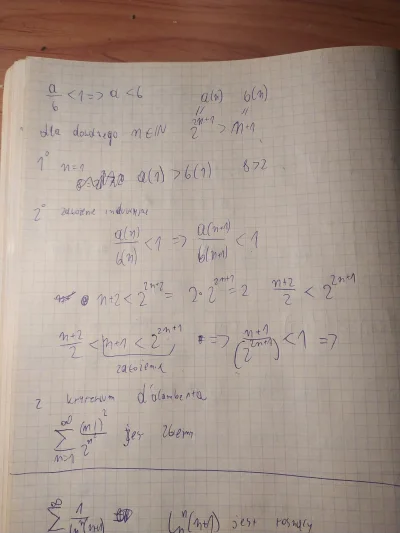 a/b < 1 => a < b    a(n)    b(n)
dla dowolnego n ∈ ℕ    2^{2n+1} > n+1
1° n=1    a(1) > b(1)    8>2
2°
a(n)/b(n) < 1 => a(n+1)/b(n+1) < 1
n+2 < 2^{2n+2} = 2·2^{2n+1} = 2    n+2/2 < 2^{2n+1}
n+2/2 < n+1 < 2^{2n+1}    => n+1/2^{2n+1} < 1 =>
założenie
z kryterium d'alamberta
∑_{n=1}^{∞} (n!)^2/2^{n^2} jest zbieżny
∑^{∞} 1/    jest rosnący